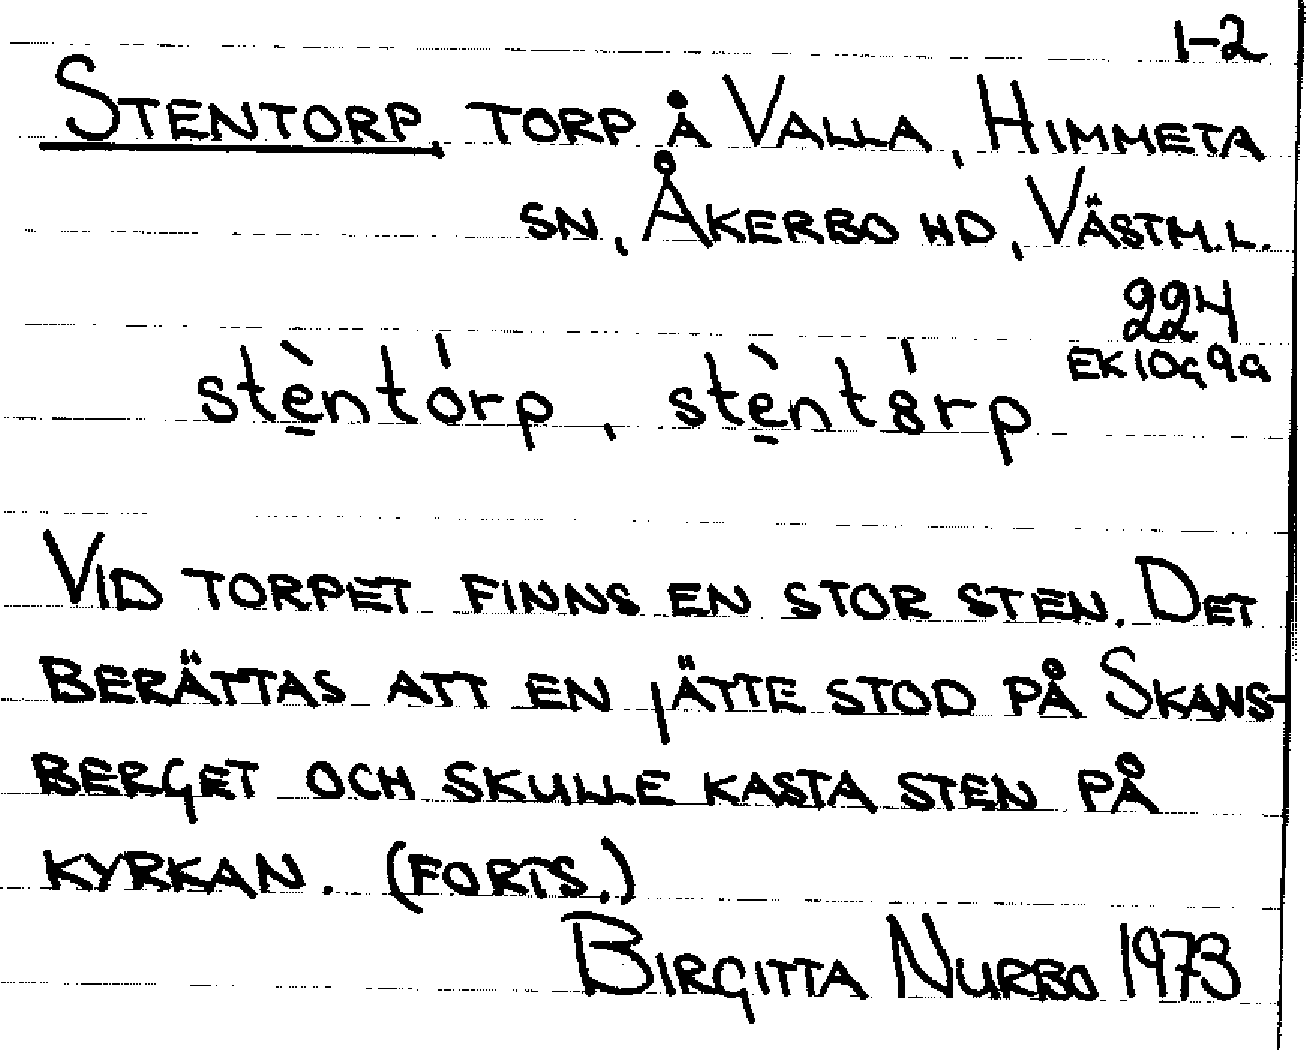 1-2
STENTORP, TORP Å VALLA, HIMMETA
SN, ÅKERBO HD, VÄSTM.L.
224
EK 10G9a
stè̱ntórp, stè̱nt8́rp
VID TORPET FINNS EN STOR STEN. DET
BERÄTTAS ATT EN JÄTTE STOD PÅ SKANS-
BERGET OCH SKULLE KASTA STEN PÅ
KYRKAN. (FORTS.)
BIRGITTA NURBO 1973